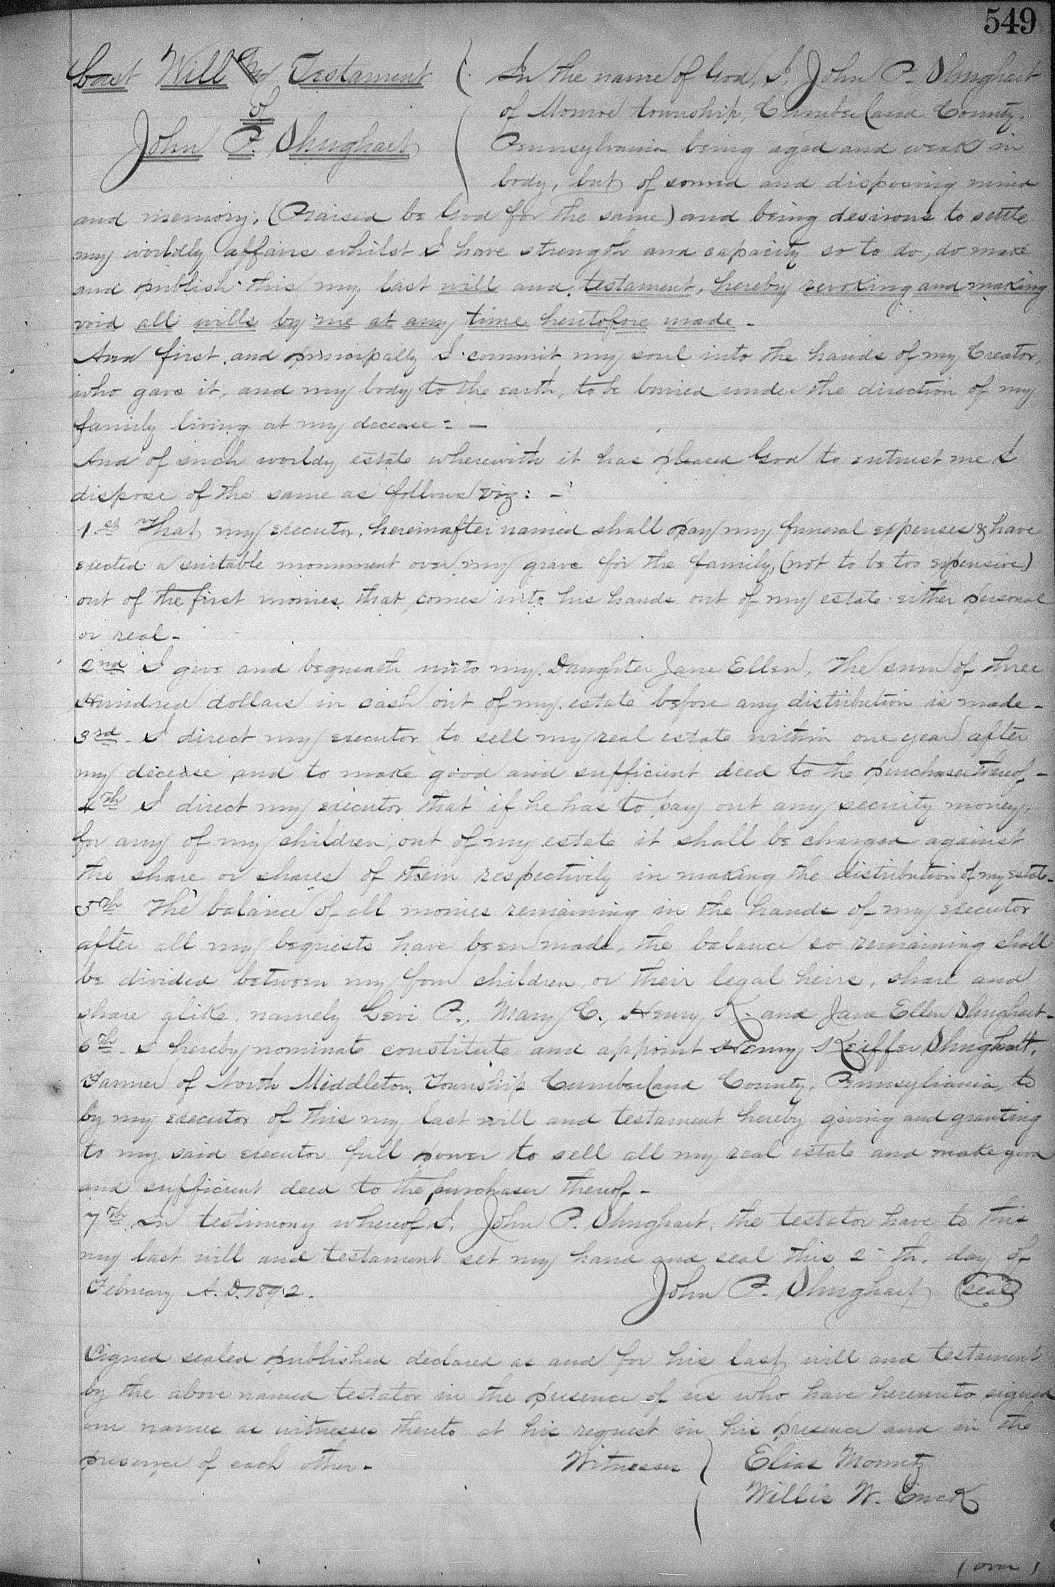 549
Last Will And Testament
of
John P. Shughart
In the name of God, I, John P. Shughart
of Monroe township, Cumberland County,
Pennsylvania being aged and weak in
body, but of sound and disposing mind
and memory, (Praised be God for the same) and being desirous to settle
my worldly affairs whilst I have strength and capacity so to do, do make
and publish this my last will and testament, hereby revoking and making
void all wills by me at any time heretofore made.
And first, and principally I commit my soul into the hands of my Creator,
who gave it, and my body to the earth, to be buried under the direction of my
family living at my decease: -
And of such worldy estate wherewith it has pleased God to entrust me I
dispose of the same as follows viz: -
1st That my executor, hereinafter named shall pay my funeral expenses & have
erected a suitable monument over my grave for the family, (not to be too expensive)
out of the first monies that comes into his hands out of my estate either personal
or real -
2nd I give and bequeath unto my Daughter Jane Ellen, the sum of three
Hundred dollars in cash out of my estate before any distribution is made -
3rd - I direct my executor to sell my real estate within one year after
my decease and to make good and sufficient deed to the purchaser thereof -
4th I direct my executor that if he has to pay out any security money,
for any of my children, out of my estate it shall be charged against
the share or shares of them respectively in making the distribution of my estate -
5th The balance of all monies remaining in the hands of my executor
after all my bequests have been made, the balance so remaining shall
be divided between my four children, or their legal heirs, share and
share alike, namely Levi P., Mary C., Henry K. and Jane Ellen Shughart -
6th - I hereby nominate constitute and appoint Henry Keiffer Shughart,
Farmer of North Middleton Township Cumberland County, Pennsylvania, to
by my executor of this my last will and testament hereby giving and granting
to my said executor full power to sell all my real estate and make good
and sufficient deed to the purchaser thereof -
7th In testimony whereof I, John P. Shughart, the testator have to this
my last will and testament set my hand and seal this 2 th. day of
February A.D. 1892. John P. Shughart (seal)
Signed sealed published declared as and for his last will and testament
by the above named testator in the presence of us who have hereunto signed
our names as witnesses thereto at his request in his presence and in the
presence of each other - Witnesses Elias Mountz
Willis W. Enck
(over)